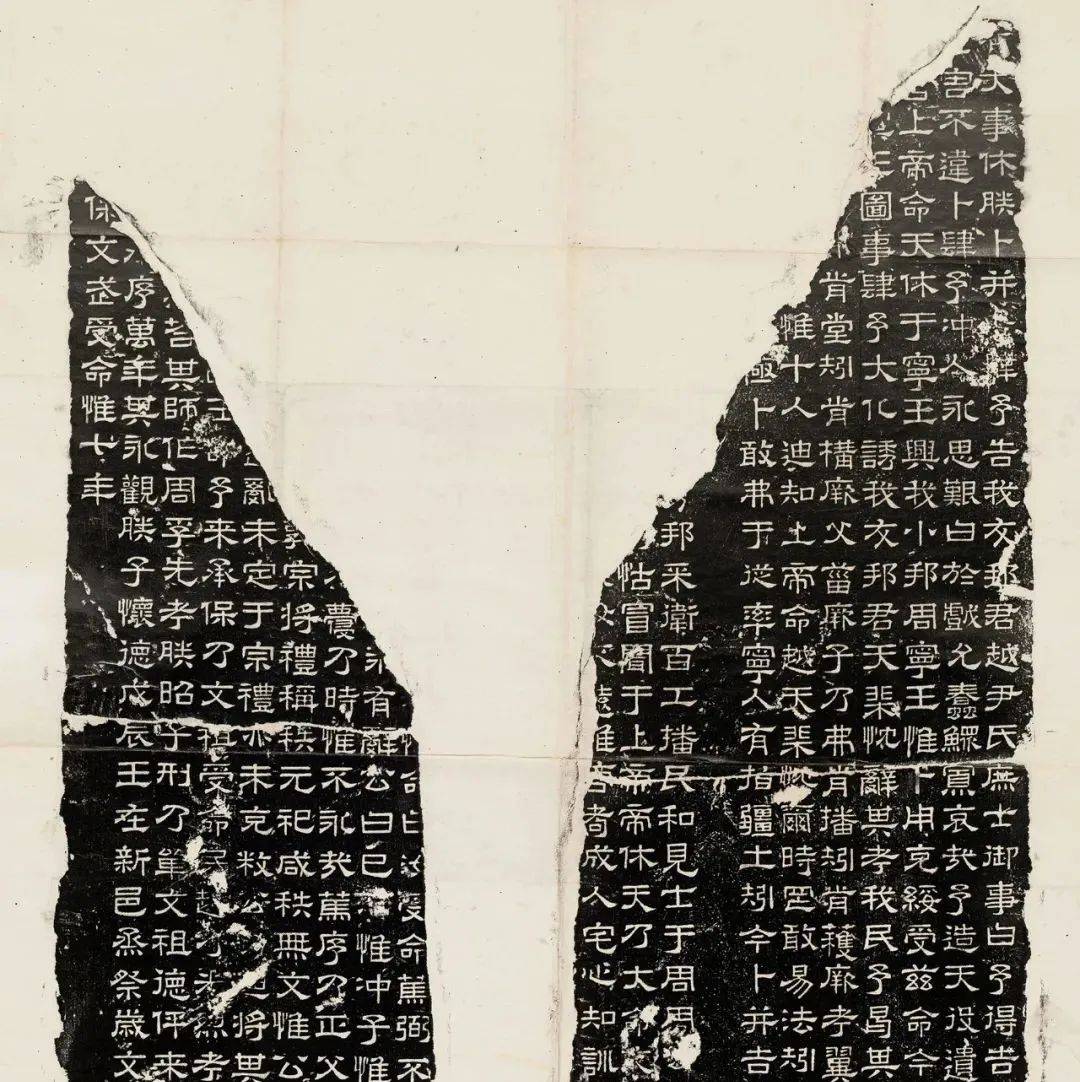 大事休朕卜并予告我友邦君越尹氏庶士御事曰予得吉
害不違卜肆予沖人永思艱曰於戲允蠢鰥寡哀哉予造天役遺
上帝命天休于寧王興我小邦周寧王惟卜用克綏受茲命今
王圖事肆予大化誘我友邦君天棐忱辭其考我民予曷其
肯堂矧肯構厥父菑厥子乃弗肯播矧肯穫厥考翼
惟十人迪知上帝命越天棐忱爾時罔敢易法矧
極卜敢弗于從率寧人有指疆土矧今卜并吉
邦采衛百工播民和見士于周周
怙冒聞于上帝帝休天乃大命
遠惟耇成人宅心知訓
曰汝受命篤弼丕
有辭公曰已惟沖子惟
蘉乃時惟不永哉篤序乃正父
宗將禮稱秩元祀咸秩無文惟公
亂未定于宗禮亦未克敉迪將其
王命予來承保乃文祖受命民越乃光烈考
若其師作周孚先考朕昭子刑乃單文祖德伻來
序萬年其永觀朕子懷德戊辰王在新邑烝祭歲文
保文武受命惟七年